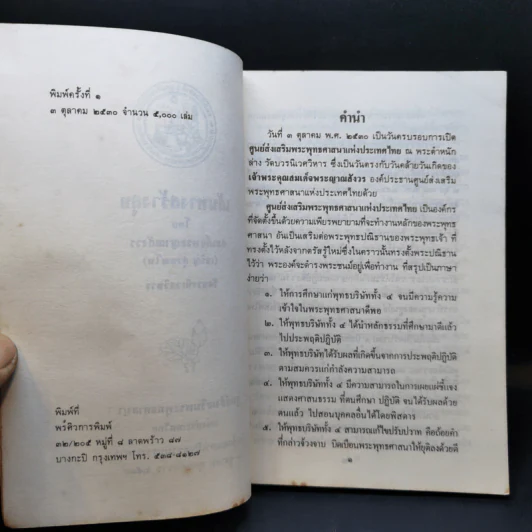 พิมพ์ครั้งที่ ๑
๓ ตุลาคม ๒๕๓๐ จำนวน ๕,๐๐๐ เล่ม
พิมพ์ที่
พรศิวการพิมพ์
๓๒/๒๐๕ หมู่ที่ ๘ ลาดพร้าว ๘๗
บางกะปิ กรุงเทพฯ โทร. ๕๓๘-๘๑๒๗
คำนำ
วันที่ ๓ ตุลาคม พ.ศ. ๒๕๓๐ เป็นวันครบรอบการเปิด
ศูนย์ส่งเสริมพระพุทธศาสนาแห่งประเทศไทย ณ พระตำหนัก
ล่าง วัดบวรนิเวศวิหาร ซึ่งเป็นวันตรงกับวันคล้ายวันเกิดของ
เจ้าพระคุณสมเด็จพระญาณสังวร องค์ประธานศูนย์ส่งเสริม
พระพุทธศาสนาแห่งประเทศไทยด้วย
ศูนย์ส่งเสริมพระพุทธศาสนาแห่งประเทศไทย เป็นองค์กร
ที่จัดตั้งขึ้นด้วยความเพียรพยายามที่จะทำงานหลักของพระพุทธ
ศาสนา อันเป็นเสริมต่อพระพุทธปณิธานของพระพุทธเจ้า ที่
ทรงตั้งไว้หลังจากตรัสรู้ใหม่ซึ่งในคราวนั้นทรงตั้งพระปณิธาน
ไว้ว่า พระองค์จะดำรงพระชนม์อยู่เพื่อทำงาน ที่สรุปเป็นภาษา
ง่ายว่า
๑. ให้การศึกษาแก่พุทธบริษัททั้ง ๔ จนมีความรู้ความ
เข้าใจในพระพุทธศาสนาดีพอ
๒. ให้พุทธบริษัททั้ง ๔ ได้นำหลักธรรมที่ศึกษามาดีแล้ว
ไปประพฤติปฏิบัติ
๓. ให้พุทธบริษัทได้รับผลที่เกิดขึ้นจากการประพฤติปฏิบัติ
ตามสมควรแก่กำลังความสามารถ
๔. ให้พุทธบริษัททั้ง ๔ มีความสามารถในการเผยแผ่ชี้แจง
แสดงศาสนธรรม ที่ตนศึกษา ปฏิบัติ จนได้รับผลด้วย
ตนแล้ว ไปสอนบุคคลอื่นได้โดยพิสดาร
๕. ให้พุทธบริษัททั้ง ๔ สามารถแก้ไขปรับปวาท คือถ้อยคำ
ที่กล่าวจ้วงจาบ บิดเบือนพระพุทธศาสนาให้ยุติลงด้วยดี